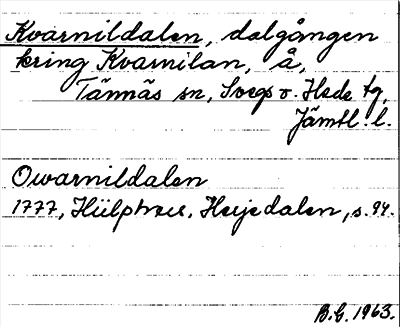 Kvarnildalen, dalgången
kring Kvarnilan, å,
Tännäs sn, Svegs o. Heds tg,
Jämtl. l.
Qwarnildalen
1777, Hülphers, Herjedalen, s. 94.
B.G. 1963.